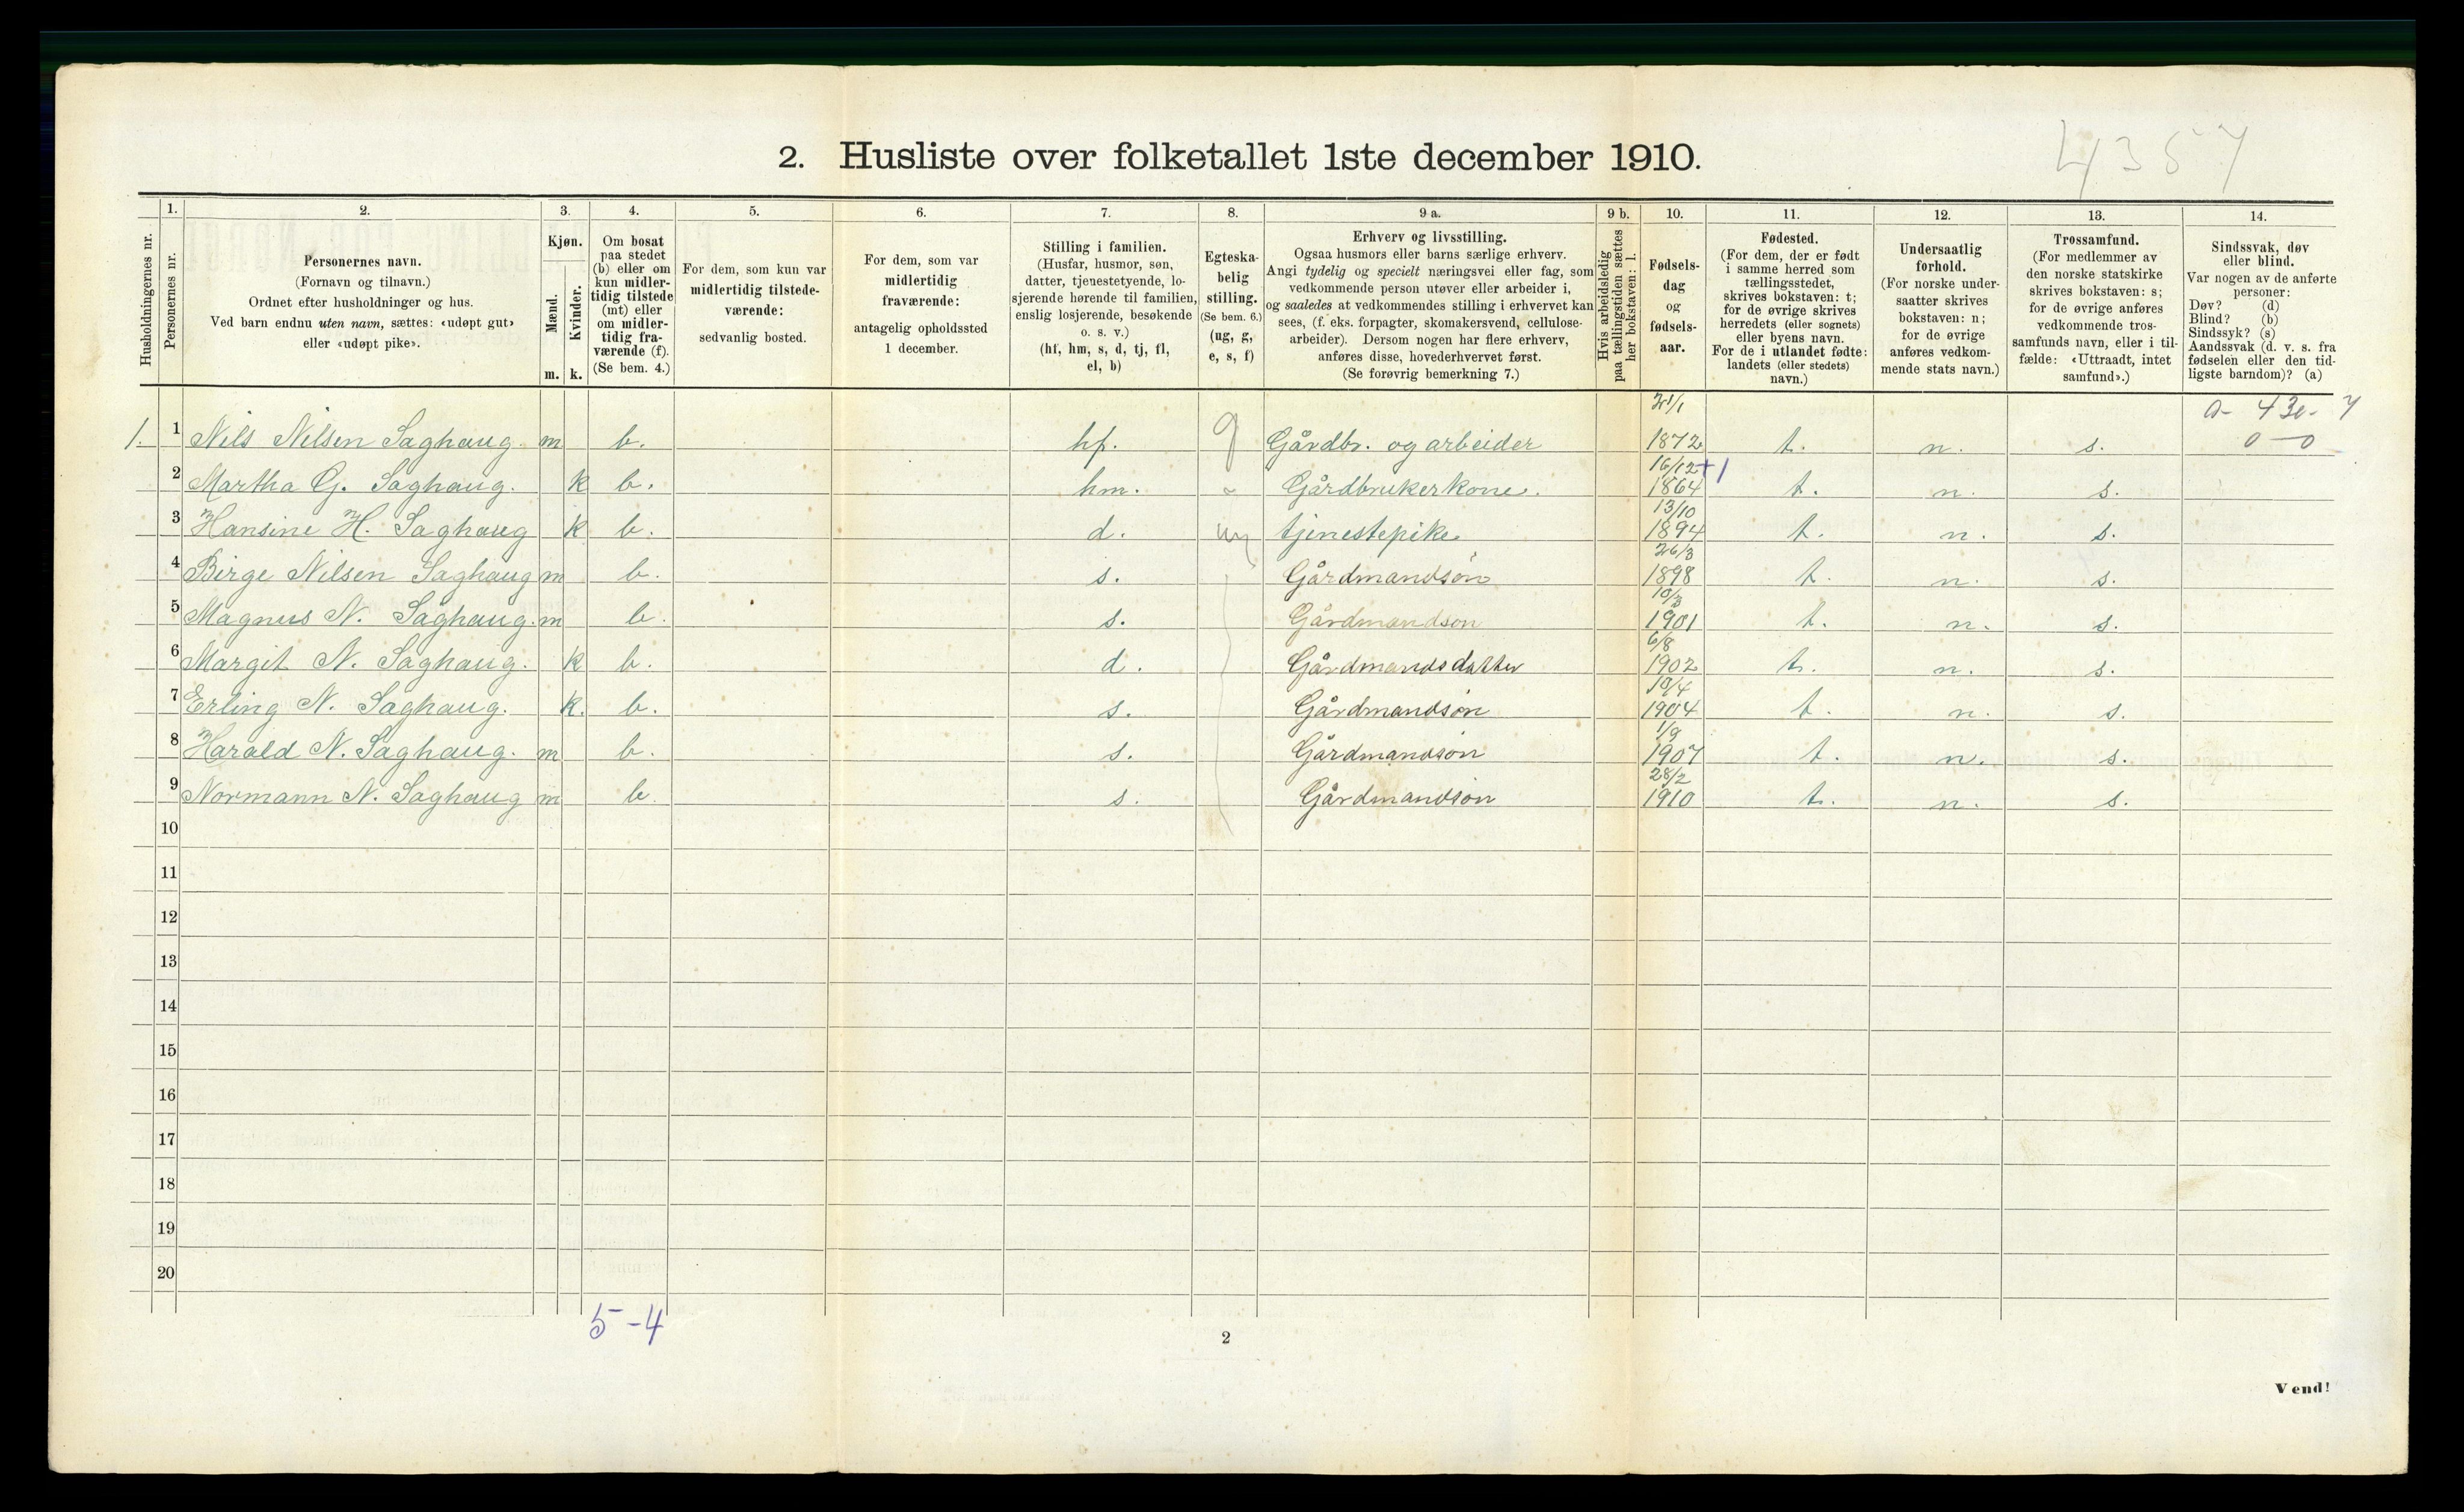 4357
2. Husliste over folketallet 1ste december 1910.
Husholdningernes nr.
1.
Personernes nr.
2.
Personernes navn.
(Fornavn og tilnavn.)
Ordnet efter husholdninger og hus.
Ved barn endnu uten navn, sættes: «udøpt gut»
eller «udøpt pike».
3.
Kjøn.
Mænd.
Kvinder.
m. k.
4.
Om bosat
paa stedet
(b) eller om
kun midler-
tidig tilstede
(mt) eller
om midler-
tidig fra-
værende (f).
(Se bem. 4.)
5.
For dem, som kun var
midlertidig tilstede-
værende:
sedvanlig bosted.
6.
For dem, som var
midlertidig
fraværende:
antagelig opholdssted
1 december.
7.
Stilling i familien.
(Husfar, husmor, søn,
datter, tjenestetyende, lo-
sjerende hørende til familien,
enslig losjerende, besøkende
o. s. v.)
(hf, hm, s, d, tj, fl,
el, b)
8.
Egteska-
belig
stilling.
(Se bem. 6.)
(ug, g,
e, s, f)
9 a.
Erhverv og livsstilling.
Ogsaa husmors eller barns særlige erhverv.
Angi tydelig og specielt næringsvei eller fag, som
vedkommende person utøver eller arbeider i,
og saaledes at vedkommendes stilling i erhvervet kan
sees, (f. eks. forpagter, skomakersvend, cellulose-
arbeider). Dersom nogen har flere erhverv,
anføres disse, hovederhvervet først.
(Se forøvrig bemerkning 7.)
9 b.
Hvis arbeidsledig
paa tællingstiden sættes
her bokstaven: l.
10.
Fødsels-
dag
og
fødsels-
aar.
11.
Fødested.
(For dem, der er født
i samme herred som
tællingsstedet,
skrives bokstaven: t;
for de øvrige skrives
herredets (eller sognets)
eller byens navn.
For de i utlandet fødte:
landets (eller stedets)
navn.)
12.
Undersaatlig
forhold.
(For norske under-
saatter skrives
bokstaven: n;
for de øvrige
anføres vedkom-
mende stats navn.)
13.
Trossamfund.
(For medlemmer av
den norske statskirke
skrives bokstaven: s;
for de øvrige anføres
vedkommende tros-
samfunds navn, eller i til-
fælde: «Uttraadt, intet
samfund».)
14.
Sindssvak, døv
eller blind.
Var nogen av de anførte
personer:
Døv? (d)
Blind? (b)
Sindssyk? (s)
Aandssvak (d. v. s. fra
fødselen eller den tid-
ligste barndom)? (a)
1. 1 Nils Nilsen Saghaug. m b. hf. g Gårdbr. og arbeider 21/1 1872 t. n. s. 0 — 0
2 Martha G. Saghaug. k b. hm. Gårdbrukerkone. 16/12 1864 t. n. s.
3 Hansine H. Saghaug k b. d. ug tjenestepike 13/10 1894 t. n. s.
4 Birge Nilsen Saghaug m b. s. Gårdmandsøn 26/3 1898 t. n. s.
5 Magnus N. Saghaug. m b. s. Gårdmandsøn 10/3 1901 t. n. s.
6 Margit N. Saghaug. k b. d. Gårdmandsdatter 6/8 1902 t. n. s.
7 Erling N. Saghaug. k. b. s. Gårdmandsøn 10/4 1904 t. n. s.
8 Harald N. Saghaug. m b. s. Gårdmandsøn 1/9 1907 t. n. s.
9 Normann N. Saghaug m b. s. Gårdmandsøn 28/2 1910 t. n. s.
10
11
12
13
14
15
16
17
18
19
20
5-4
2
Vend!